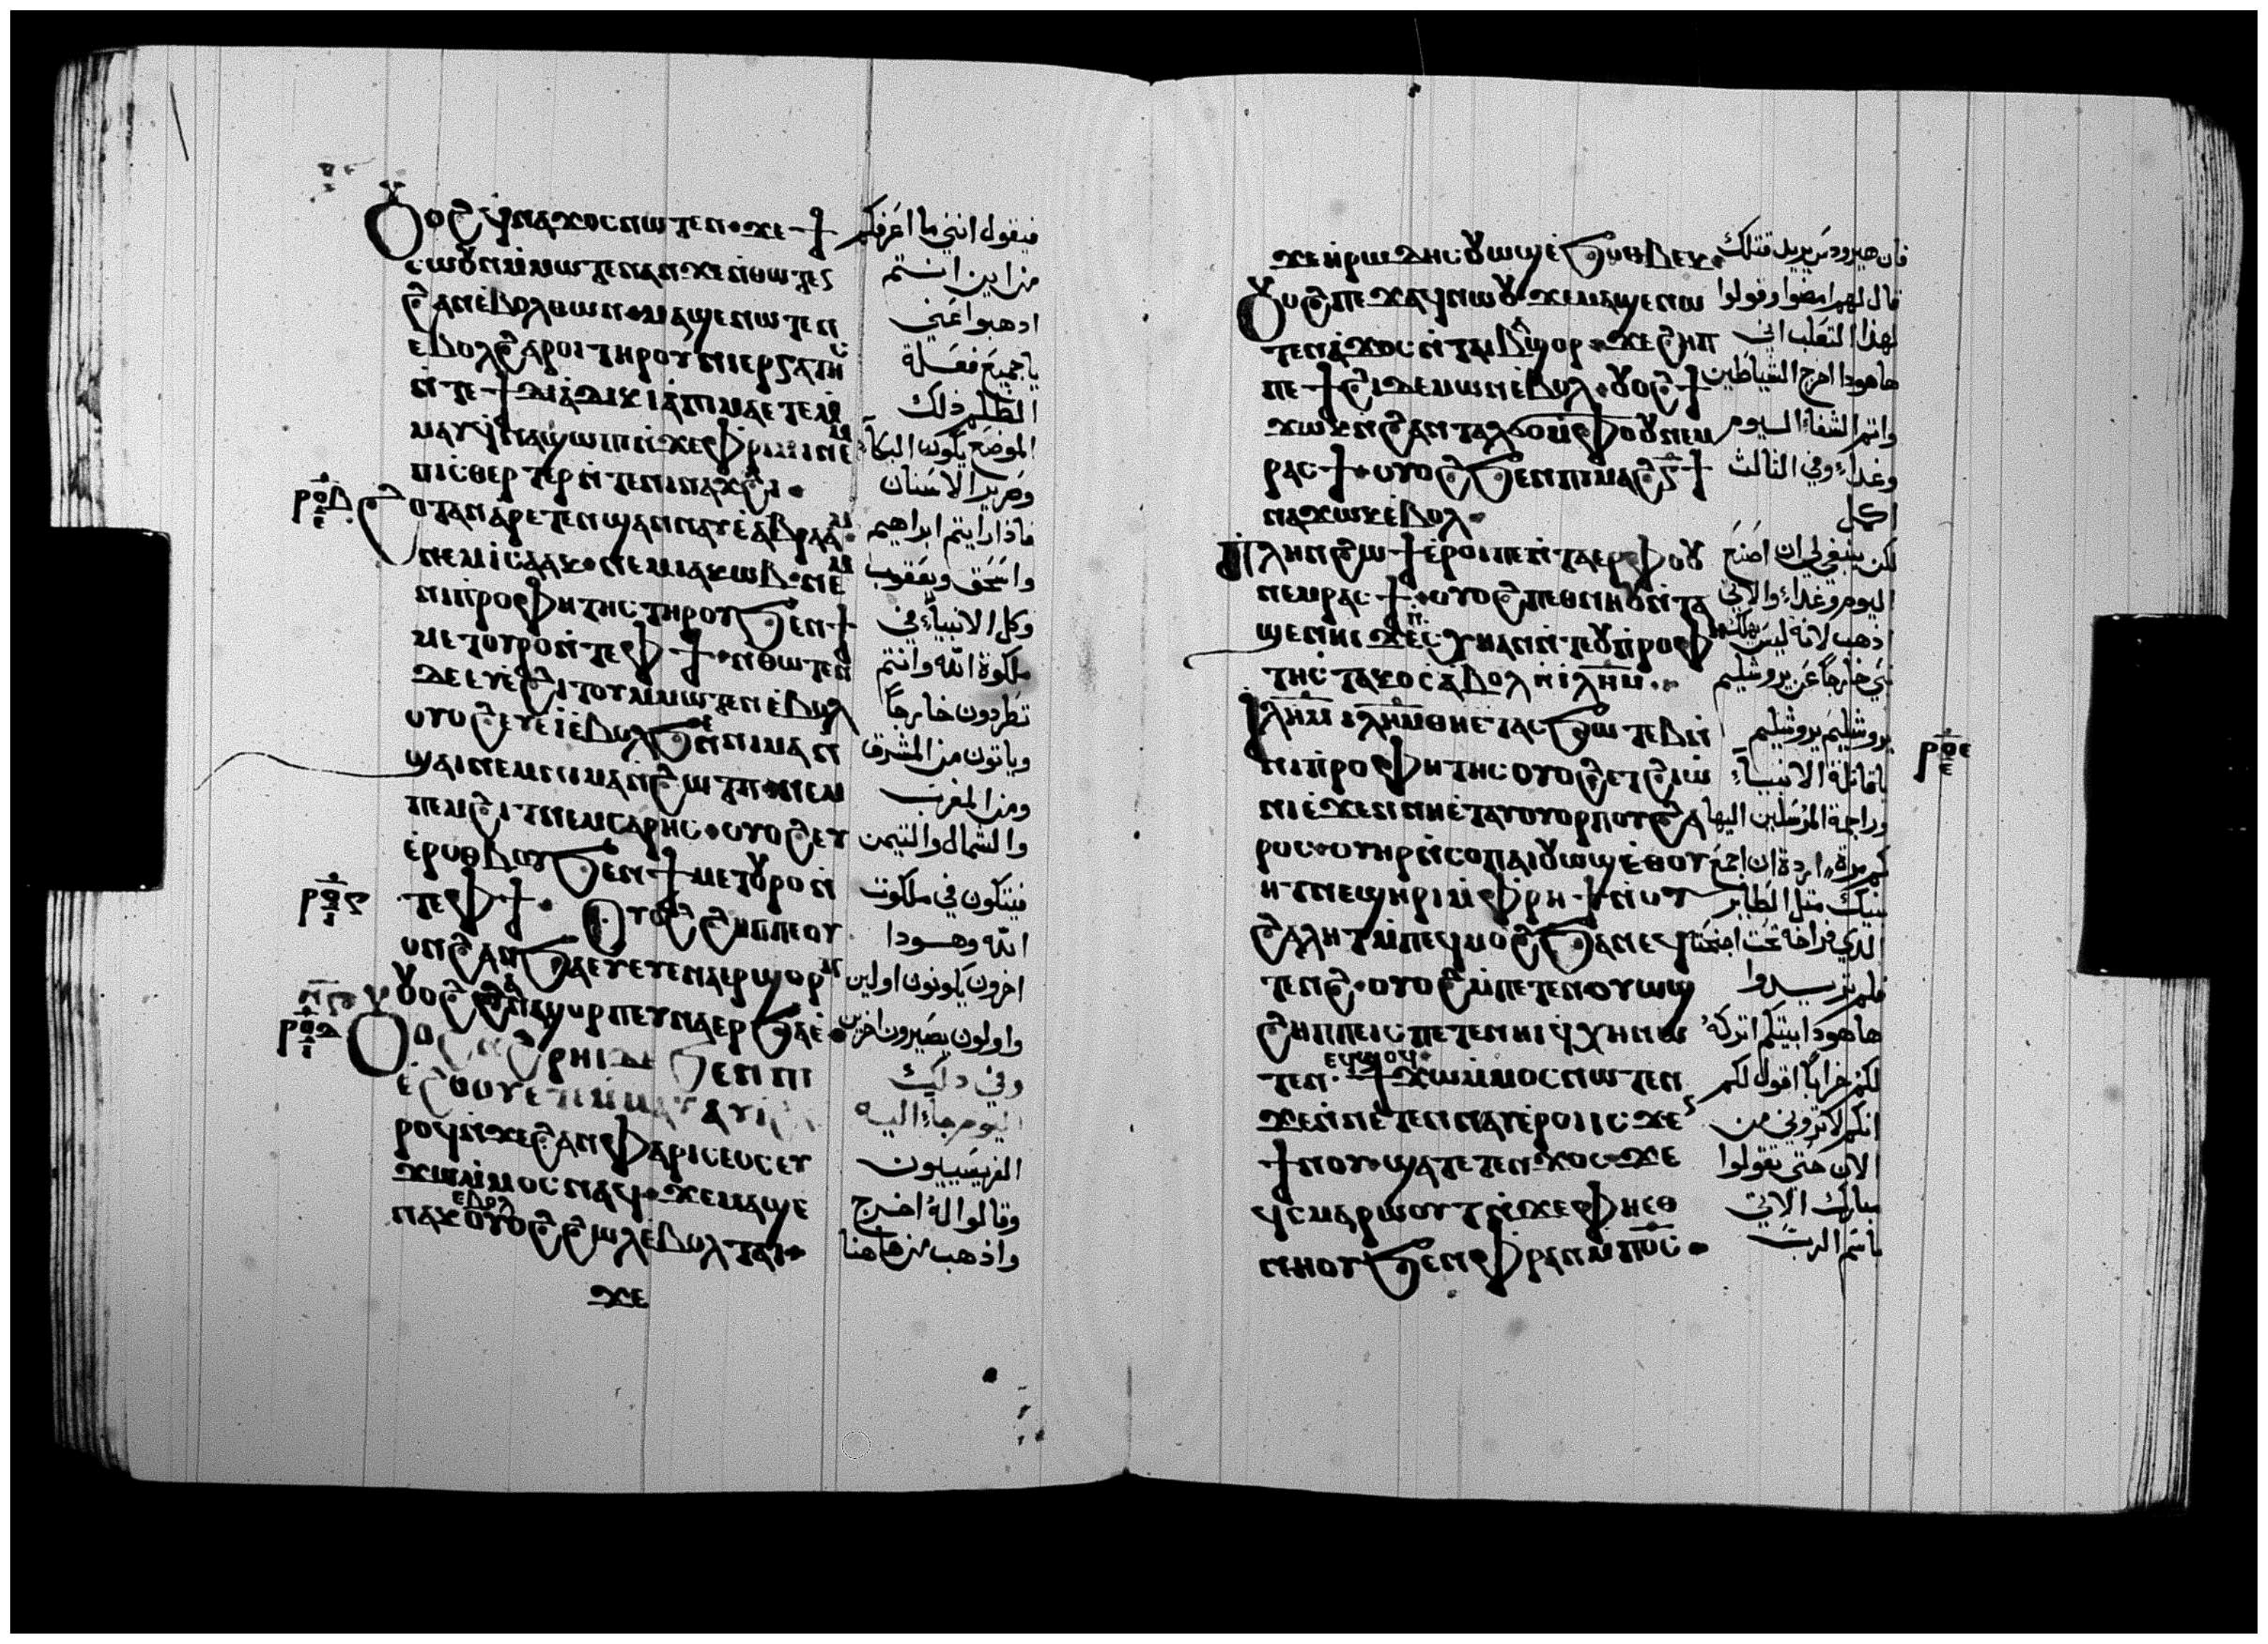 Ⲟⲩⲟϩ ϥⲛⲁϫⲟⲥ ⲛⲱⲧⲉⲛ· ϫⲉ ϯ
ⲥⲱⲟⲩⲛ ⲙ̀ⲙⲱⲧⲉⲛ ⲁⲛ ϫⲉ ⲛ̀ⲑⲱⲧⲉ
ϩⲁⲛⲉ̀ⲃⲟⲗ ⲑⲱⲛ· ⲙⲁϣⲉⲛⲱⲧⲉⲛ
ⲉⲃⲟⲗϩⲁⲣⲟⲓ ⲧⲏⲣⲟⲩ ⲛⲓⲉⲣⲅⲁⲧⲏⲥ
ⲛ̀ⲧⲉ ϯⲁⲇⲓⲕⲓⲁ̀ ⲡⲓⲙⲁ ⲉⲧⲉⲙ
ⲙⲁⲩ ϥⲛⲁϣⲱⲡⲓ ⲛ̀ϫⲉ ⲫⲣⲓⲙⲓ ⲛⲉⲙ
ⲡⲓⲥⲑⲉⲣⲧⲉⲣ ⲛ̀ⲧⲉ ⲛⲓⲛⲁϫϩⲓ·
ⲣⲟⲃ
ϩⲟⲧⲁⲛ ⲁⲣⲉⲧⲉⲛϣⲁⲛⲛⲁⲩ ⲉ̀ⲁⲃⲣⲁⲁⲙ·
ⲛⲉⲙ ⲓⲥⲁⲁⲕ· ⲛⲉⲙ ⲓⲁⲕⲱⲃ· ⲛⲉⲙ
ⲛⲓⲡⲣⲟⲫⲏⲧⲏⲥ ⲧⲏⲣⲟⲩ ϧⲉⲛ ϯ
ⲙⲉⲧⲟⲩⲣⲟ ⲛ̀ⲧⲉ ⲫϯ· ⲛ̀ⲑⲱⲧⲉⲛ
ⲇⲉ ⲉⲩⲉ̀ϩⲓⲧⲟⲩ ⲙ̀ⲙⲱⲧⲉⲛ ⲉ̀ⲃⲟⲗ
ⲟⲩⲟϩ ⲉⲩⲉⲓ̀ ⲉ̀ⲃⲟⲗϧⲉⲛ ⲛⲓⲙⲁⲛ̀
ϣⲁⲓ ⲛⲉⲙ ⲛⲓⲙⲁⲛ̀ϩⲱⲧⲡ· ⲛⲉⲙ
ⲡⲉⲙϩⲓⲧ ⲛⲉⲙ ⲥⲁⲣⲏⲥ· ⲟⲩⲟϩ ⲉⲩ
ⲉ̀ⲣⲟⲑⲃⲟⲩ ϧⲉⲛ ϯⲙⲉⲧⲟⲩⲣⲟ ⲛ̀
ⲧⲉ ⲫϯ· Ⲟⲩⲟϩ ϩⲏⲡⲡⲉ ⲟⲩ
ⲟⲛ ϩⲁⲛϧⲁⲉⲩ ⲉⲩⲉⲛⲁⲉⲣϣⲟⲣⲡ
ⲟⲩⲟϩ ϩⲁⲛϣⲟⲣⲡ ⲉⲩⲛⲁⲉⲣϧⲁⲉ̀·
ϧⲉⲛ ⲡⲓ
ⲉ̀ϩⲟⲟⲩ ⲉⲧⲉⲙⲙⲁⲩ ⲁⲩⲓ̀
ⲣⲟϥ ⲛ̀ϫⲉ ϩⲁⲛⲫⲁⲣⲓⲥⲉⲟⲥ ⲉⲩ
ϫⲱ ⲙ̀ⲙⲟⲥ ⲛⲁϥ· ϫⲉ ⲙⲁϣⲉ
ⲛⲁⲕ ⲉⲃⲟⲗ ⲟⲩⲟϩ ϩⲱⲗ ⲉ̀ⲃⲟⲗ ⲧⲁⲓ·
ϫⲉ
فيقول انني ما اعرفكم
من اين انتم
اذهبوا عني
يا جميع فعلة
الظلم ذلك
الموضع يكون البكا
وصرير الاسنان
فاذا رايتم ابراهيم
واسحق ويعقوب
وكل الانبياء في
ملكوة الله وانتم
تطردون خارجاً
وياتون من المشرق
ومن المغرب
والشمال والتيمن
فيتكون في ملكوت
الله وهودا
اخرون يكونون اولين
واولون يصيرون اخرين
وفي ذلك
اليوم جاء اليه
الفريسيون
وقالوا له اخرج
واذهب من هاهنا
ϫⲉ ⲏⲣⲱⲇⲏⲥ ⲟⲩⲱϣ ⲉ̀ϧⲟⲑⲃⲉⲕ·
Ⲟⲩⲟϩ ⲡⲉϫⲁϥ ⲛⲱⲟⲩ ϫⲉ ⲙⲁϣⲉⲛⲱ
ⲧⲉⲛ ⲁ̀ϫⲟⲥ ⲛ̀ⲧⲁⲓⲃⲁϣⲟⲣ· ϫⲉ ϩⲏⲡ
ⲡⲉ ϯϩⲓ ⲇⲉⲙⲱⲛ ⲉ̀ⲃⲟⲗ· ⲟⲩⲟϩ ϯ
ϫⲱⲕ ⲛ̀ϩⲁⲛⲧⲁⲗϭⲟ ⲙ̀ⲫⲟⲟⲩ ⲛⲉⲙ
ⲣⲁⲥϯ· ⲟⲩⲟϩ ϧⲉⲛ ⲡⲓⲙⲁϩⲅ̅ ϯ
ⲛⲁϫⲱⲕ ⲉ̀ⲃⲟⲗ·
Ⲡⲗⲏⲛ ϩⲱϯ ⲉ̀ⲣⲟⲓ ⲡⲉ ⲛ̀ⲧⲁⲉⲣ ⲫⲟⲟⲩ
ⲛⲉⲙ ⲣⲁⲥϯ· ⲟⲩⲟϩ ⲡⲉⲑⲛⲏⲟⲩ ⲛ̀ⲧⲁ
ϣⲉⲛⲏⲓ ϫⲉ ⲥ̀ⲭⲏ ⲁⲛ ⲛ̀ⲧⲉ ⲟⲩⲡⲣⲟⲫⲏ
ⲧⲏⲥ ⲧⲁⲕⲟ ⲥⲁⲃⲟⲗ ⲛ̀ⲓⲗⲏⲙ·
Ⲓⲗⲏⲙ ⲓⲗⲏⲙ ⲑⲏⲉⲧⲁⲥϧⲱⲧⲉⲃ ⲛ̀
ⲛⲓⲡⲣⲟⲫⲏⲧⲏⲥ ⲟⲩⲟϩ ⲉⲧϩⲓⲱ̀
ⲛⲓ ⲉ̀ϫⲉⲛ ⲛⲏⲉ̀ⲧⲁⲩⲟⲩⲟⲣⲡⲟⲩ ϩⲁ
ⲣⲟⲥ· ⲟⲩⲏⲣ ⲛ̀ⲥⲟⲡ ⲁⲓⲟⲩⲱϣ ⲉ̀ⲑⲟⲩ
ⲏⲧ ⲛⲉϣⲏⲣⲓ ⲙ̀ⲫⲣⲏϯ ⲛ̀ⲟⲩ
ϩⲁⲗⲏⲧ ⲙ̀ⲡⲉϥⲙⲟϩ ϧⲁ ⲛⲉϥ
ⲧⲉⲛϩ· ⲟⲩⲟϩ ⲙ̀ⲡⲉⲧⲉⲛⲟⲩⲱϣ
ϩⲏⲡⲡⲉ ⲓⲥ ⲡⲉⲧⲉⲛⲏⲓ ϥⲭⲏ ⲛⲱ
ⲧⲉⲛ· ⲉϥϣⲟϥ· ϯϫⲱ ⲙ̀ⲙⲟⲥ ⲛⲱⲧⲉⲛ
ϫⲉ ⲛ̀ⲛⲉⲧⲉⲛⲛⲁⲩ ⲉ̀ⲣⲟⲓ ⲓⲥϫⲉⲛ
ϯⲛⲟⲩ· ϣⲁⲧⲉⲧⲉⲛϫⲟⲥ· ϫⲉ
ϥⲥⲙⲁⲣⲱⲟⲩⲧ ⲛ̀ϫⲉ ⲫⲏⲉⲑ
ⲛⲏⲟⲩ ϧⲉⲛ ⲫⲣⲁⲛ ⲙ̀ⲡ̅ⲟ̅ⲥ̅·
فان هيرودس يريد قتلك
قال لهم امضوا وقولوا
لهذا الثعلب اني
هاهوذا اخرج الشياطين
واتم الشفاء اليوم
وغداً وفي الثالث
اكمل
لكن ينبغي لي ان اصنع
اليوم وغداً والاتي
اذهب لانه ليس يهلك
نبي خارجاً عن يروشليم
يروشليم يروشليم
يا قاتلة الانبياء
وراجمة المرسلين اليها
كم مرة اردة ان اجمع
بنيك مثل الطاير
الذي فراخه تحت اجنحته
فلم تريدوا
هاهوذا بيتكم اتركه
لكم خراباً اقول لكم
انكم لا تروني من
الان حتى تقولوا
مبارك الاتي
باسم الرب